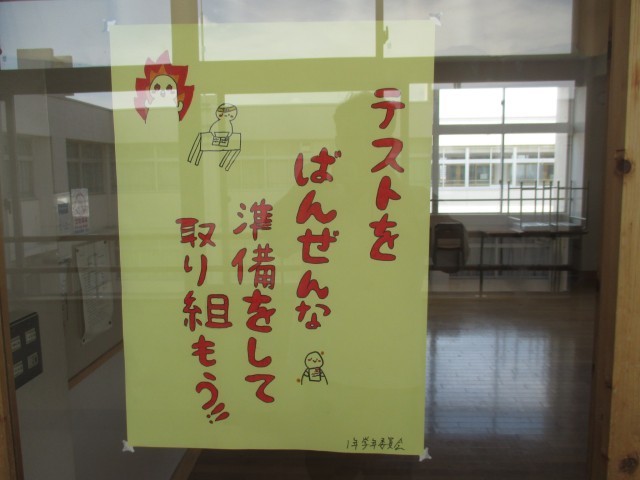 テストを
ばんぜんな
準備をして
取り組もう!!
1年学年委員会